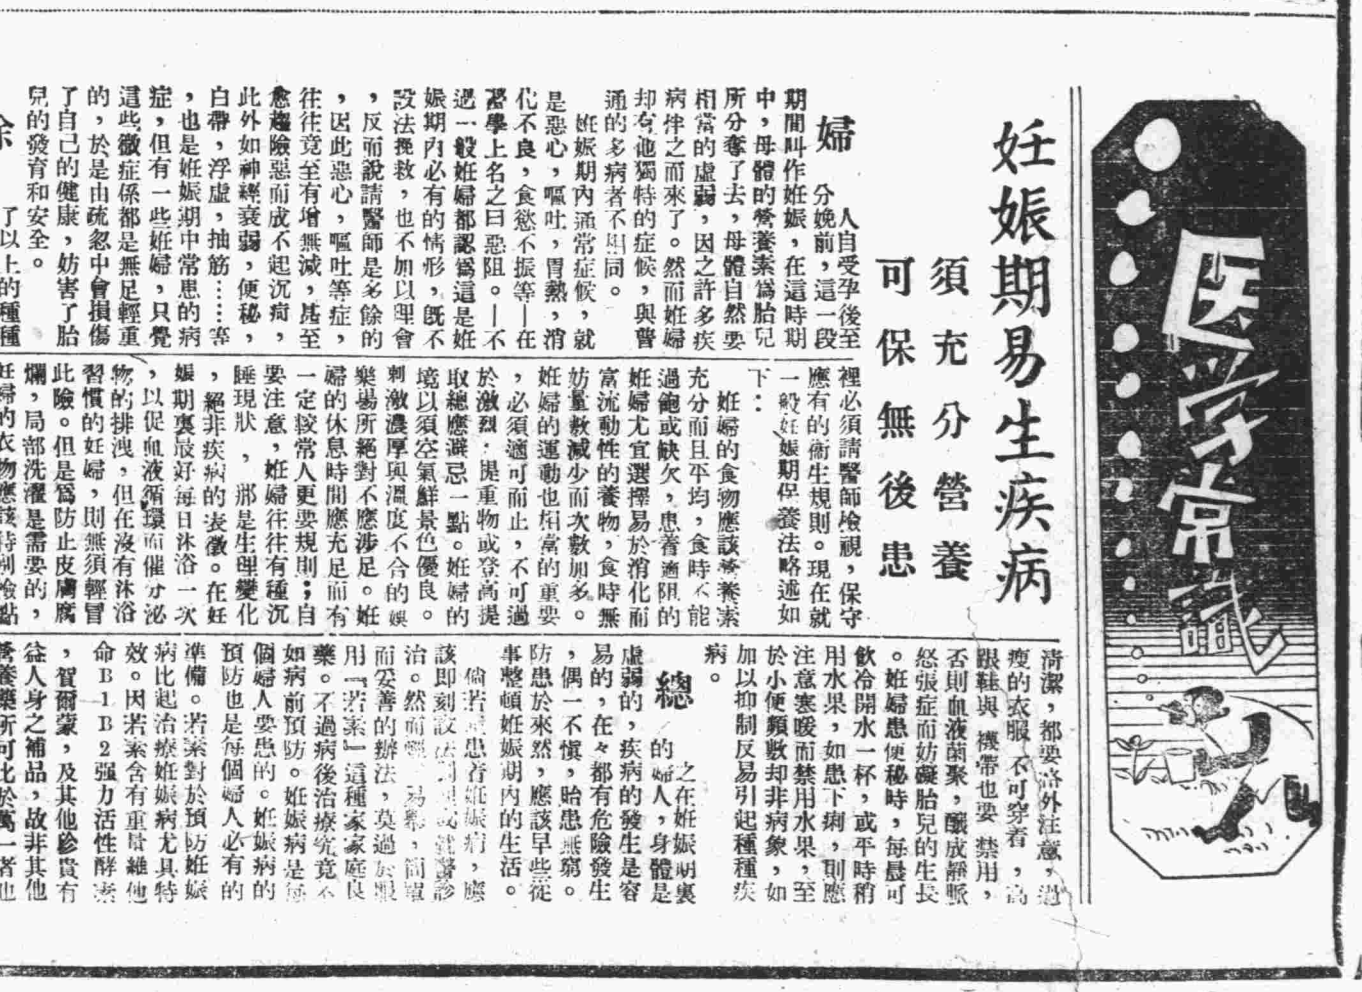 医学常識
妊娠期易生疾病
須充分營養
可保無後患
婦人自受孕後至
分娩前，這一段
期間叫作妊娠，在這時期
中，母體的營養素爲胎兒
所分奪了去，母體自然要
相當的虛弱，因之許多疾
病伴之而來了。然而妊婦
却有他獨特的症候，與普
通的多病者不相同。
妊娠期內通常症候，就
是惡心，嘔吐，胃熱，消
化不良，食慾不振等—在
醫學上名之曰惡阻。—不
過一般妊婦都認爲這是妊
娠期內必有的情形，旣不
設法挽救，也不加以理會
，反而說請醫師是多餘的
，因此惡心，嘔吐等症，
往往竟至有增無減，甚至
愈趨險惡而成不起沉疴，
此外如神經衰弱，便秘，
白帶，浮虛，抽筋……等
，也是妊娠期中常患的病
症，但有一些妊婦，只覺
這些徵症係都是無足輕重
的，於是由疏忽中會損傷
了自己的健康，妨害了胎
兒的發育和安全。
除了以上的種種
裡必須請醫師檢視，保守
應有的衛生規則。現在就
一般妊娠期保養法略述如
下：
妊婦的食物應該營養素
充分而且平均，食時不能
過飽或缺欠，患着適阻的
妊婦尤宜選擇易於消化而
富流動性的養物，食時無
妨量數減少而次數加多。
妊婦的運動也相當的重要
，必須適可而止，不可過
於激烈．提重物或登高提
取總應避忌一點。妊婦的
境以須空氣鮮景色優良。
刺激濃厚與溫度不合的娛
樂場所絕對不應涉足。妊
婦的休息時間應充足而有
一定較常人更要規則；自
要注意，妊婦往往有種沉
睡現狀，那是生理變化
，絕非疾病的表徵。在妊
娠期裏最好每日沐浴一次
，以促血液循環而催分泌
物的排洩，但在沒有沐浴
習慣的妊婦，則無須輕冒
此險。但是爲防止皮膚腐
爛，局部洗濯是需要的，
妊婦的衣物應該特別檢點
清潔，都要格外注意，過
瘦的衣服，不可穿着，高
跟鞋與襪帶也要禁用，
否則血液菌聚，釀成靜脈
怒張症而妨礙胎兒的生長
。妊婦患便秘時，每晨可
飲冷開水一杯，或平時稍
用水果，如患下痢，則應
注意寒暖而禁用水果，至
於小便頻數却非病象，如
加以抑制反易引起種種疾
病。
總之在妊娠期裏
的婦人，身體是
虛弱的，疾病的發生是容
易的，在々都有危險發生
，偶一不愼，貽患無窮。
防患於來然，應該早些從
事整頓妊娠期內的生活。
倘若患着妊娠病，應
該即刻設法調理或就醫診
治。然而輕易，簡單
而妥善的辦法，莫過於服
用『若素』這種家家庭良
藥。不過病後治療究竟不
如病前預防。妊娠病是每
個婦人要患的。妊娠病的
預防也是每個婦人必有的
準備。若素對於預防妊娠
病比起治療妊娠病尤具特
效。因若素含有重量維他
命B1B2强力活性酵素
，賀爾蒙，及其他診貴有
益人身之補品，故非其他
營養藥所可比於萬一者也